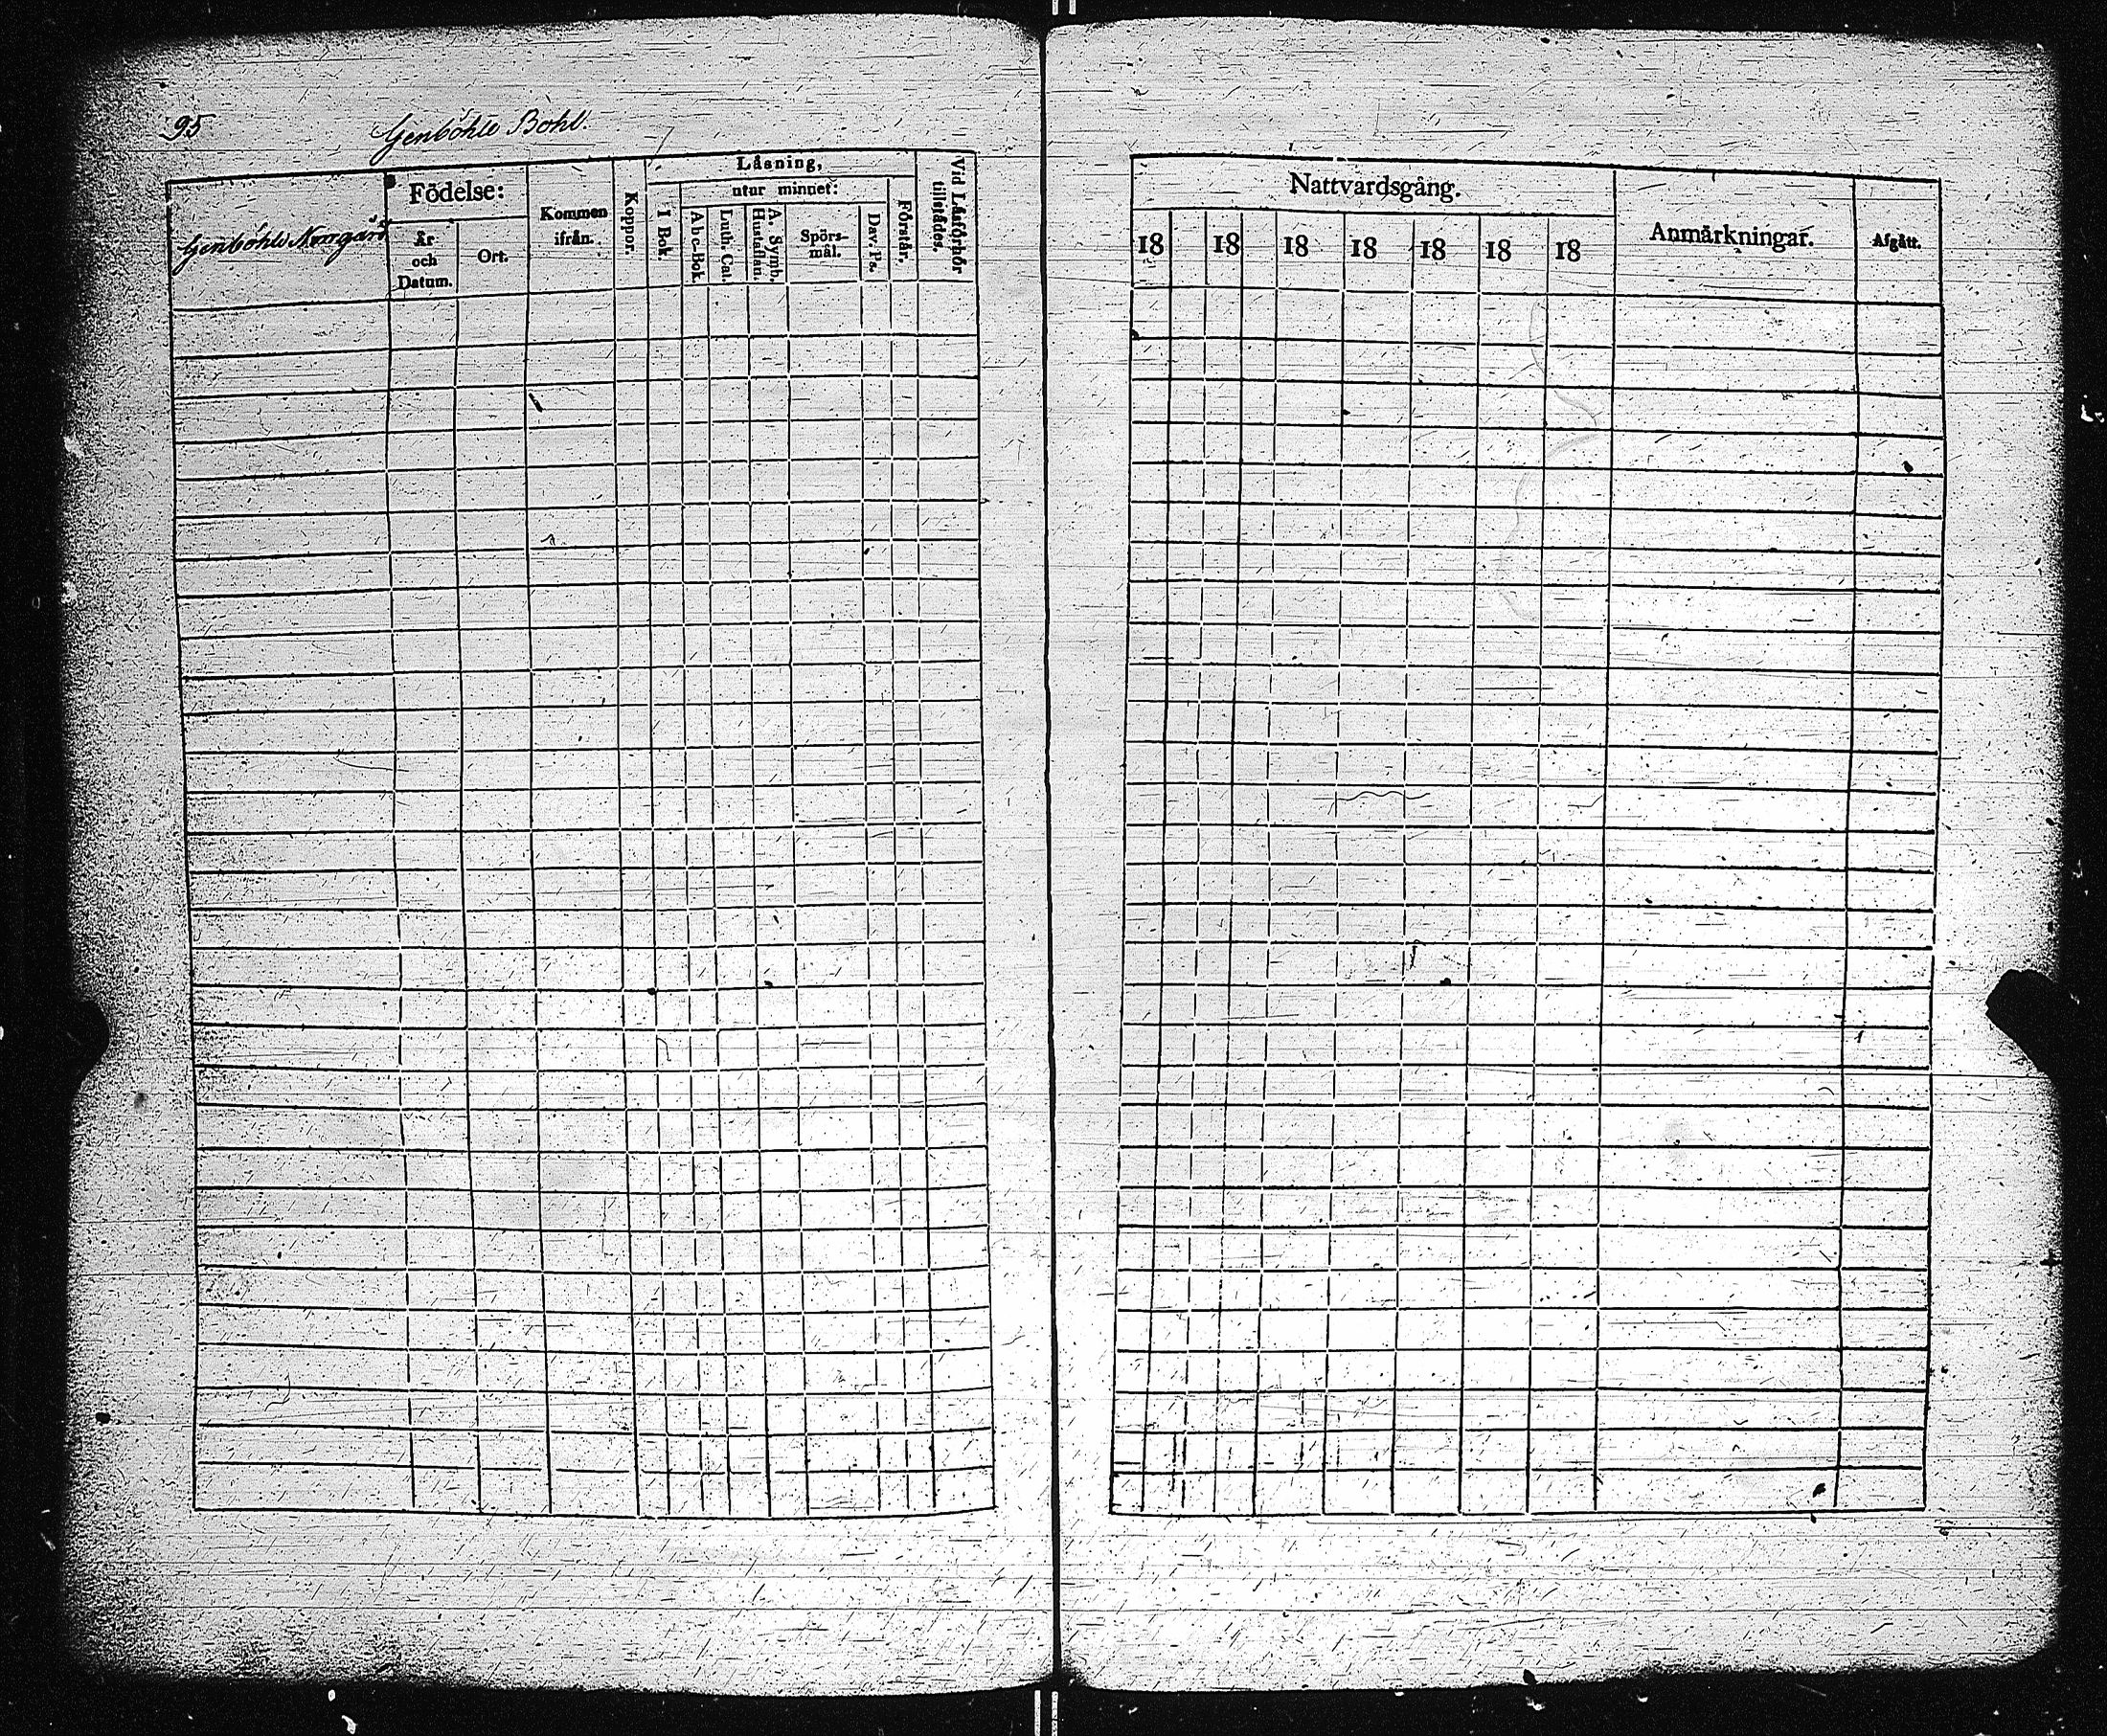 95
Genböhle Bohl.
Genböhle Norrgård
Födelse:
År och Datum.
Ort.
Kommen ifrån.
Koppor.
Låsning,
I Bok.
utur minnet:
Abc-Bok.
Luth. Cat.
A. Symb. Hustaflan.
Spörs-mål.
Dav. Ps.
Förstår.
Vid Låsförhör tillstådes.
Nattvardsgång.
18 18 18 18 18 18 18
Anmårkningar.
Afgått.